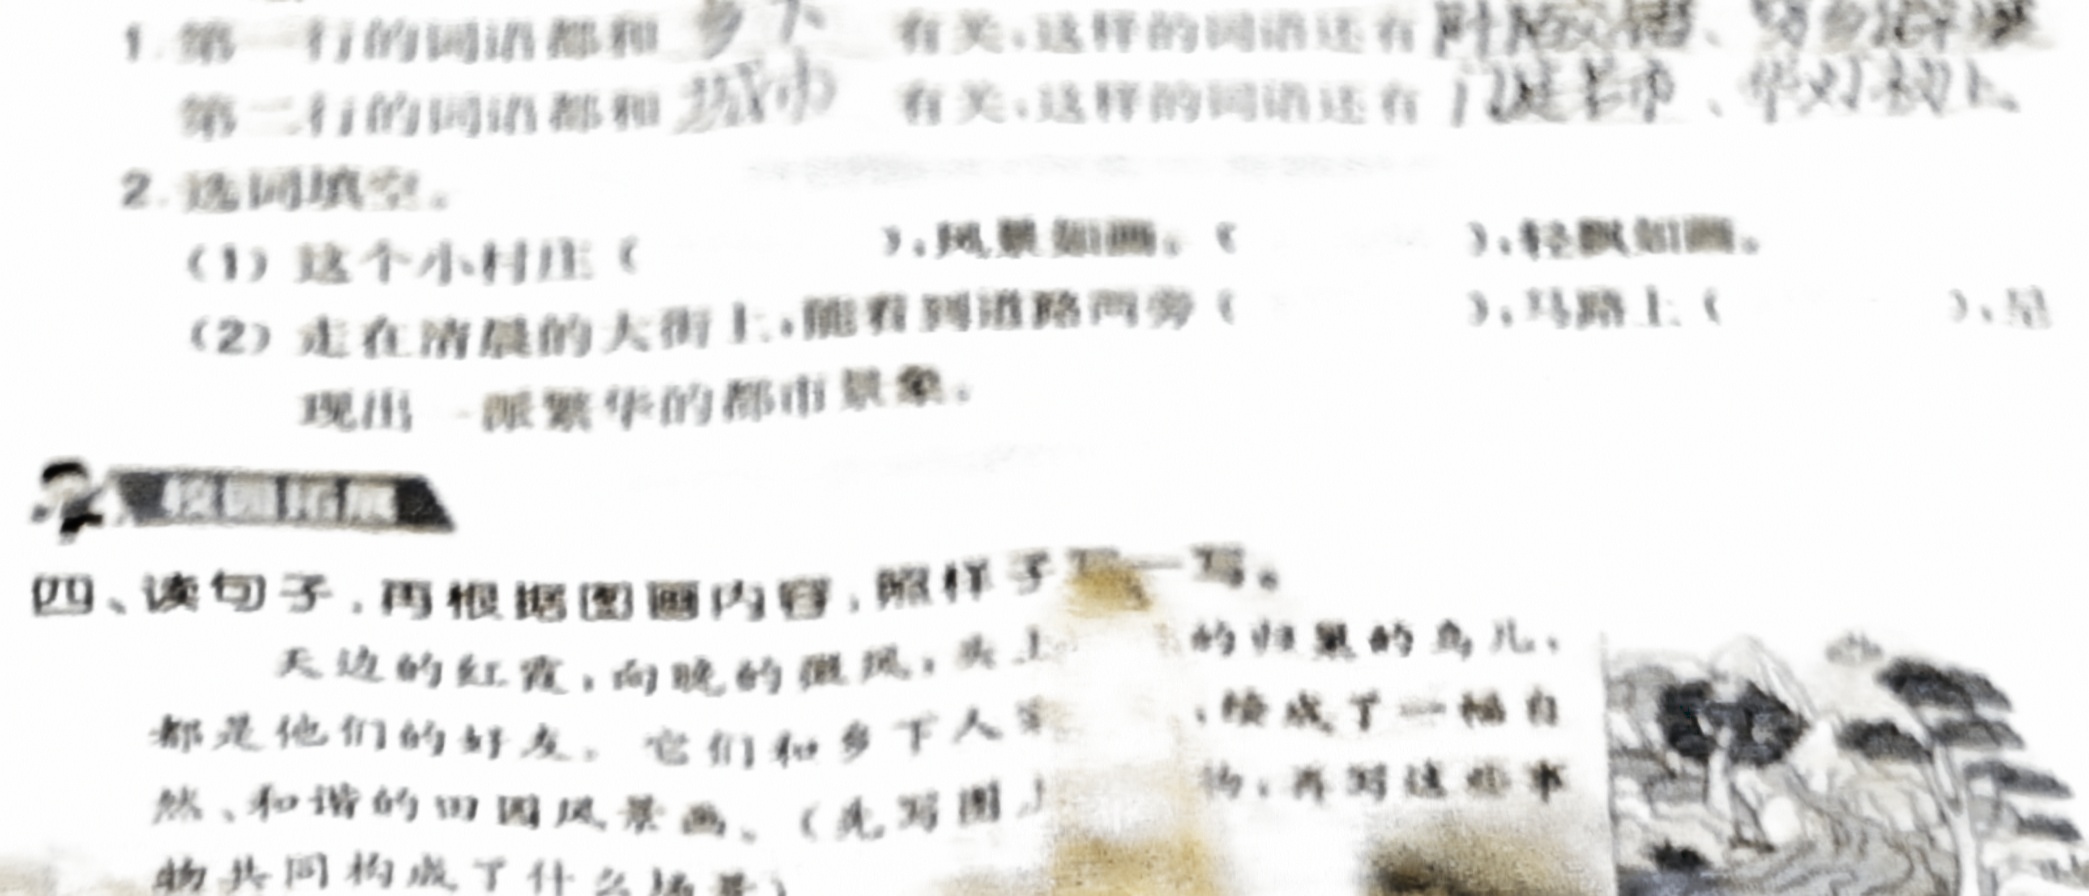 1. 第一行的词语都和 乡下 有关,这样的词语还有
第二行的词语都和 城市 有关,这样的词语还有 门庭若市、华灯初上
2. 选词填空。
(1) 这个小村庄( ),风景如画。( ),轻飘如画。
(2) 走在清晨的大街上,能看到道路两旁( ),马路上( ),呈
现出一派繁华的都市景象。
校园拓展
四、读句子,再根据图画内容,照样子写一写。
天边的红霞,向晚的微风,头上 的归巢的鸟儿,
都是他们的好友。它们和乡下人家 ,绘成了一幅自
然、和谐的田园风景画。(先写图上 物,再写这些事
物共同构成了什么场景)